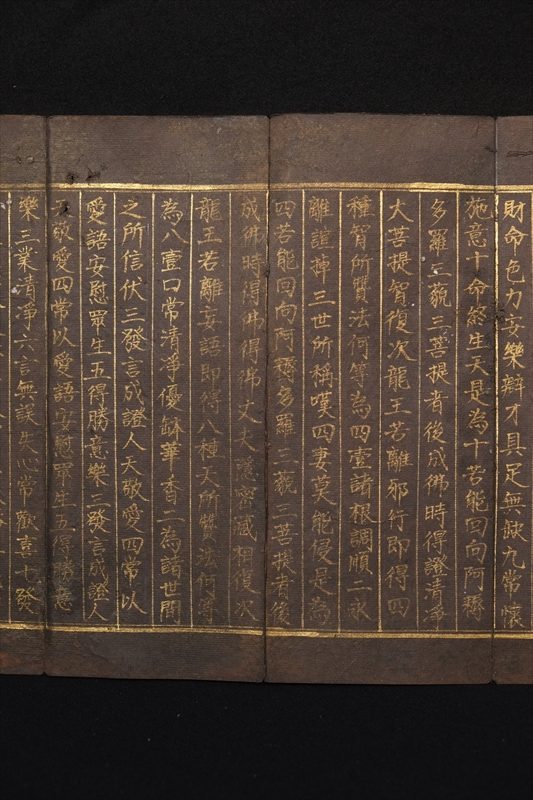 財命色力安樂辯才具足無缺九常懷
施意十命終生天是為十若能回向阿耨
多羅三藐三菩提者後成佛時得證清淨
大菩提智復次龍王若離邪行即得四
種智所贊法何等為四壹諸根調順二永
離諠掉三世所稱嘆四妻莫能侵是為
四若能回向阿耨多羅三藐三菩提者後
成佛時得佛得佛丈夫隱密藏相復次
龍王若離妄語即得八種天所贊法何等
為八壹口常清淨優缽華香二為諸世間
之所信伏三發言成證人天敬愛四常以
愛語安慰眾生五得勝意樂三發言成證人
天敬愛四常以愛語安慰眾生五得勝意
樂三業清淨六言無誤失心常歡喜七發